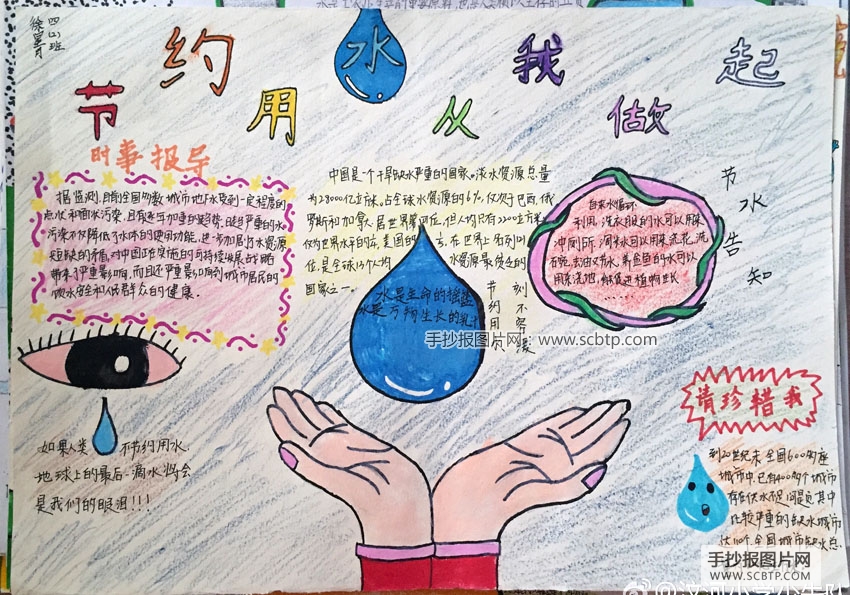 四(二)班
节约用水 从我做起
时事报导
据监测,目前全国多数城市地下水受到一定程度的
点状和面状污染,且有逐年加重的趋势。日趋严重的水
污染不仅降低了水体的使用功能,进一步加剧了水资源
短缺的矛盾,对中国正在实施的可持续发展战略
带来了严重影响,而且还严重影响到城市居民的
饮水安全和人民群众的健康.
中国是一个干旱缺水严重的国家。淡水资源总量
为28000亿立方米,占全球水资源的6%,仅次于巴西、俄
罗斯和加拿大,居世界第四位,但人均只有2200立方米
仅为世界水平的
美国的
在世界上名列
位,是全球13个人均
水资源最贫乏的
国家之一。
水是生命的摇篮
水是万物生长的乳汁
节约用水
刻不容缓
自来水循环
利用,洗衣服的水可以用来
冲厕所,淘米水可以用来浇花、洗
可以
用来浇地,
促进植物生长
......
节水告知
如果人类不节约用水.
地球上的最后一滴水将会
是我们的眼泪!!!
请珍惜我
到20世纪末,全国600多座
城市中,已有400多个城市
存在供水不足问题,其中
比较严重的缺水城市
达110个,全国城市缺水总
手抄报图片网:www.scbtp.com
手抄报图片网
WWW.SCBTP.COM